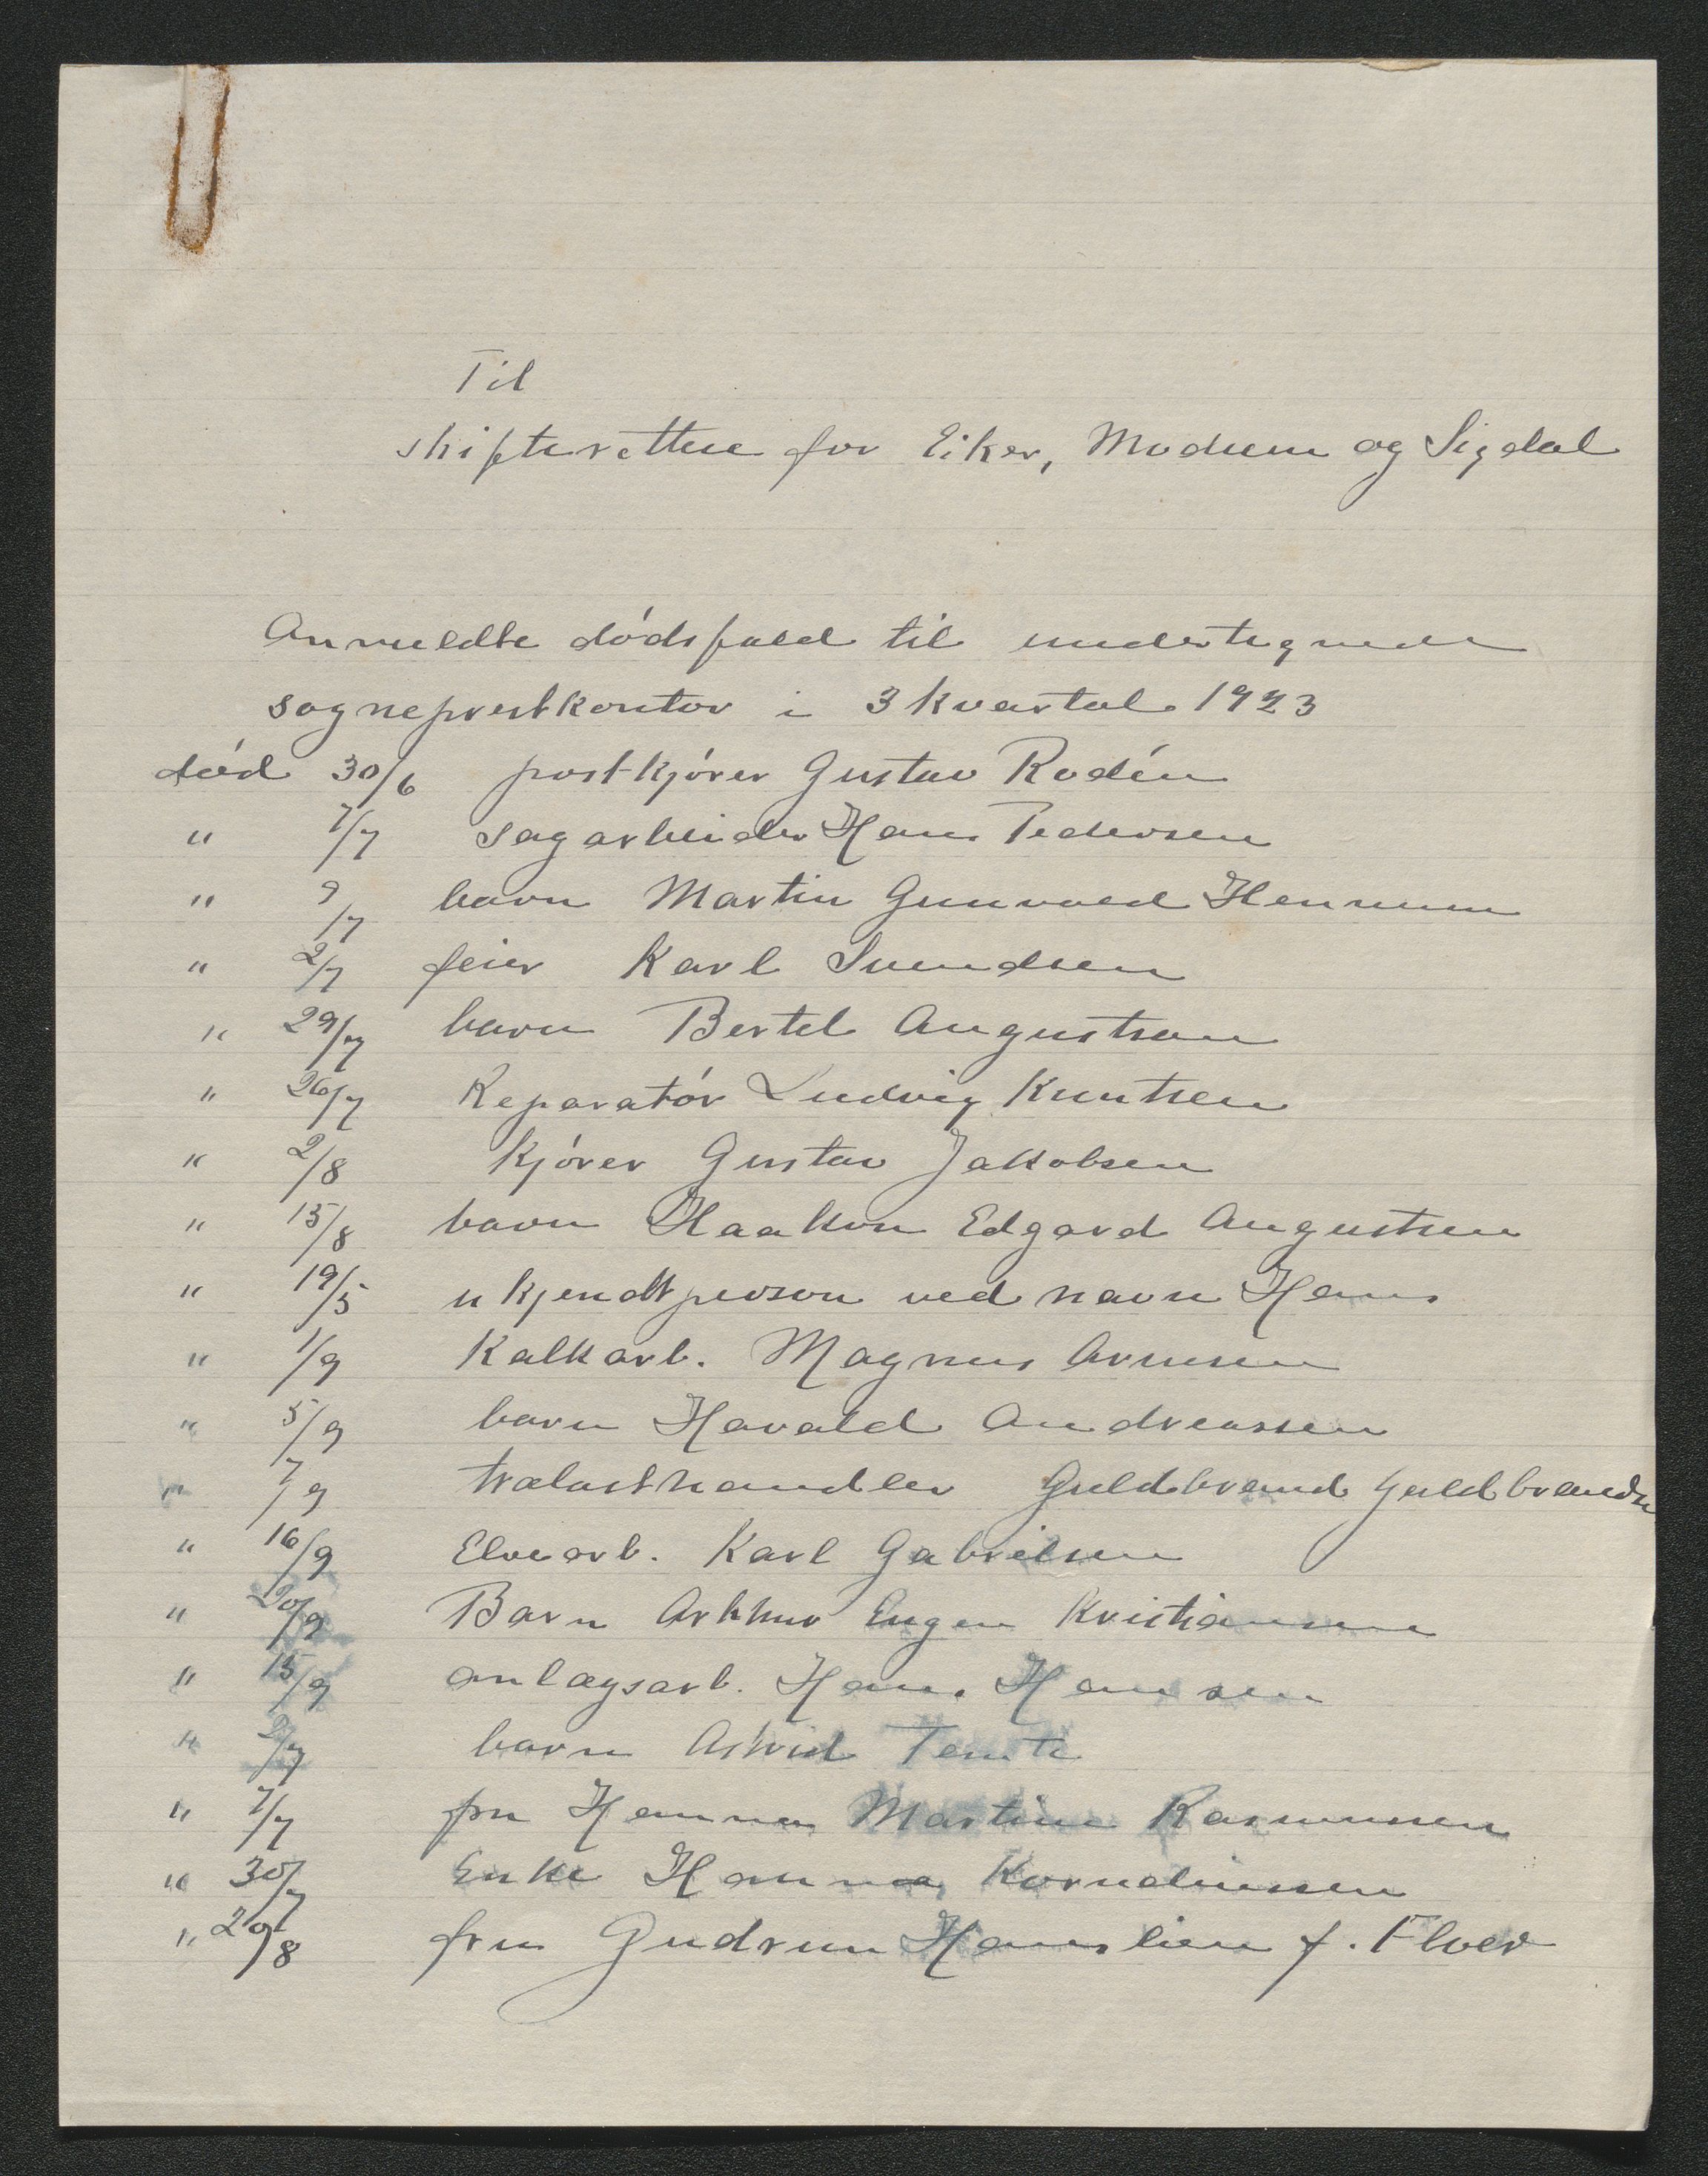 Til
skifteretten for Eiker, Modum og Sigdal
Anmeldte dødsfald til undertegnede
sogneprestkontor i 3 kvartal 1923
død 30/6 postkjører Gustav Rodén
" 7/7 sagarbeider Hans Pedersen
" 9/7 barn Martin Gunvald Hennum
" 2/7 feier Karl Svendsen
" 29/7 barn Bertel Augustsen
" 26/7 Reparatør Ludvig Knutsen
" 2/8 kjører Gustav Jakobsen
" 15/8 barn Haakon Edgard Augustsen
" 19/5 ukjendt person ved navn Hans
" 1/9 Kalkarb. Magnus Arnesen
" 5/9 barn Harald Andreassen
" 7/9 trælasthandler Guldbrand Guldbrandsen
" 16/9 Elvearb. Karl Gabrielsen
" 20/9 Barn Arthur Eugen Kristiansen
" 15/9 anlægsarb. Hans Hansen
" 2/7 barn Astrid Temte
" 7/7 fru Hanna Martine Rasmussen
" 30/7 Enke Hanna Korneliussen
" 29/8 fru Gudrun Hanslien f. Floer